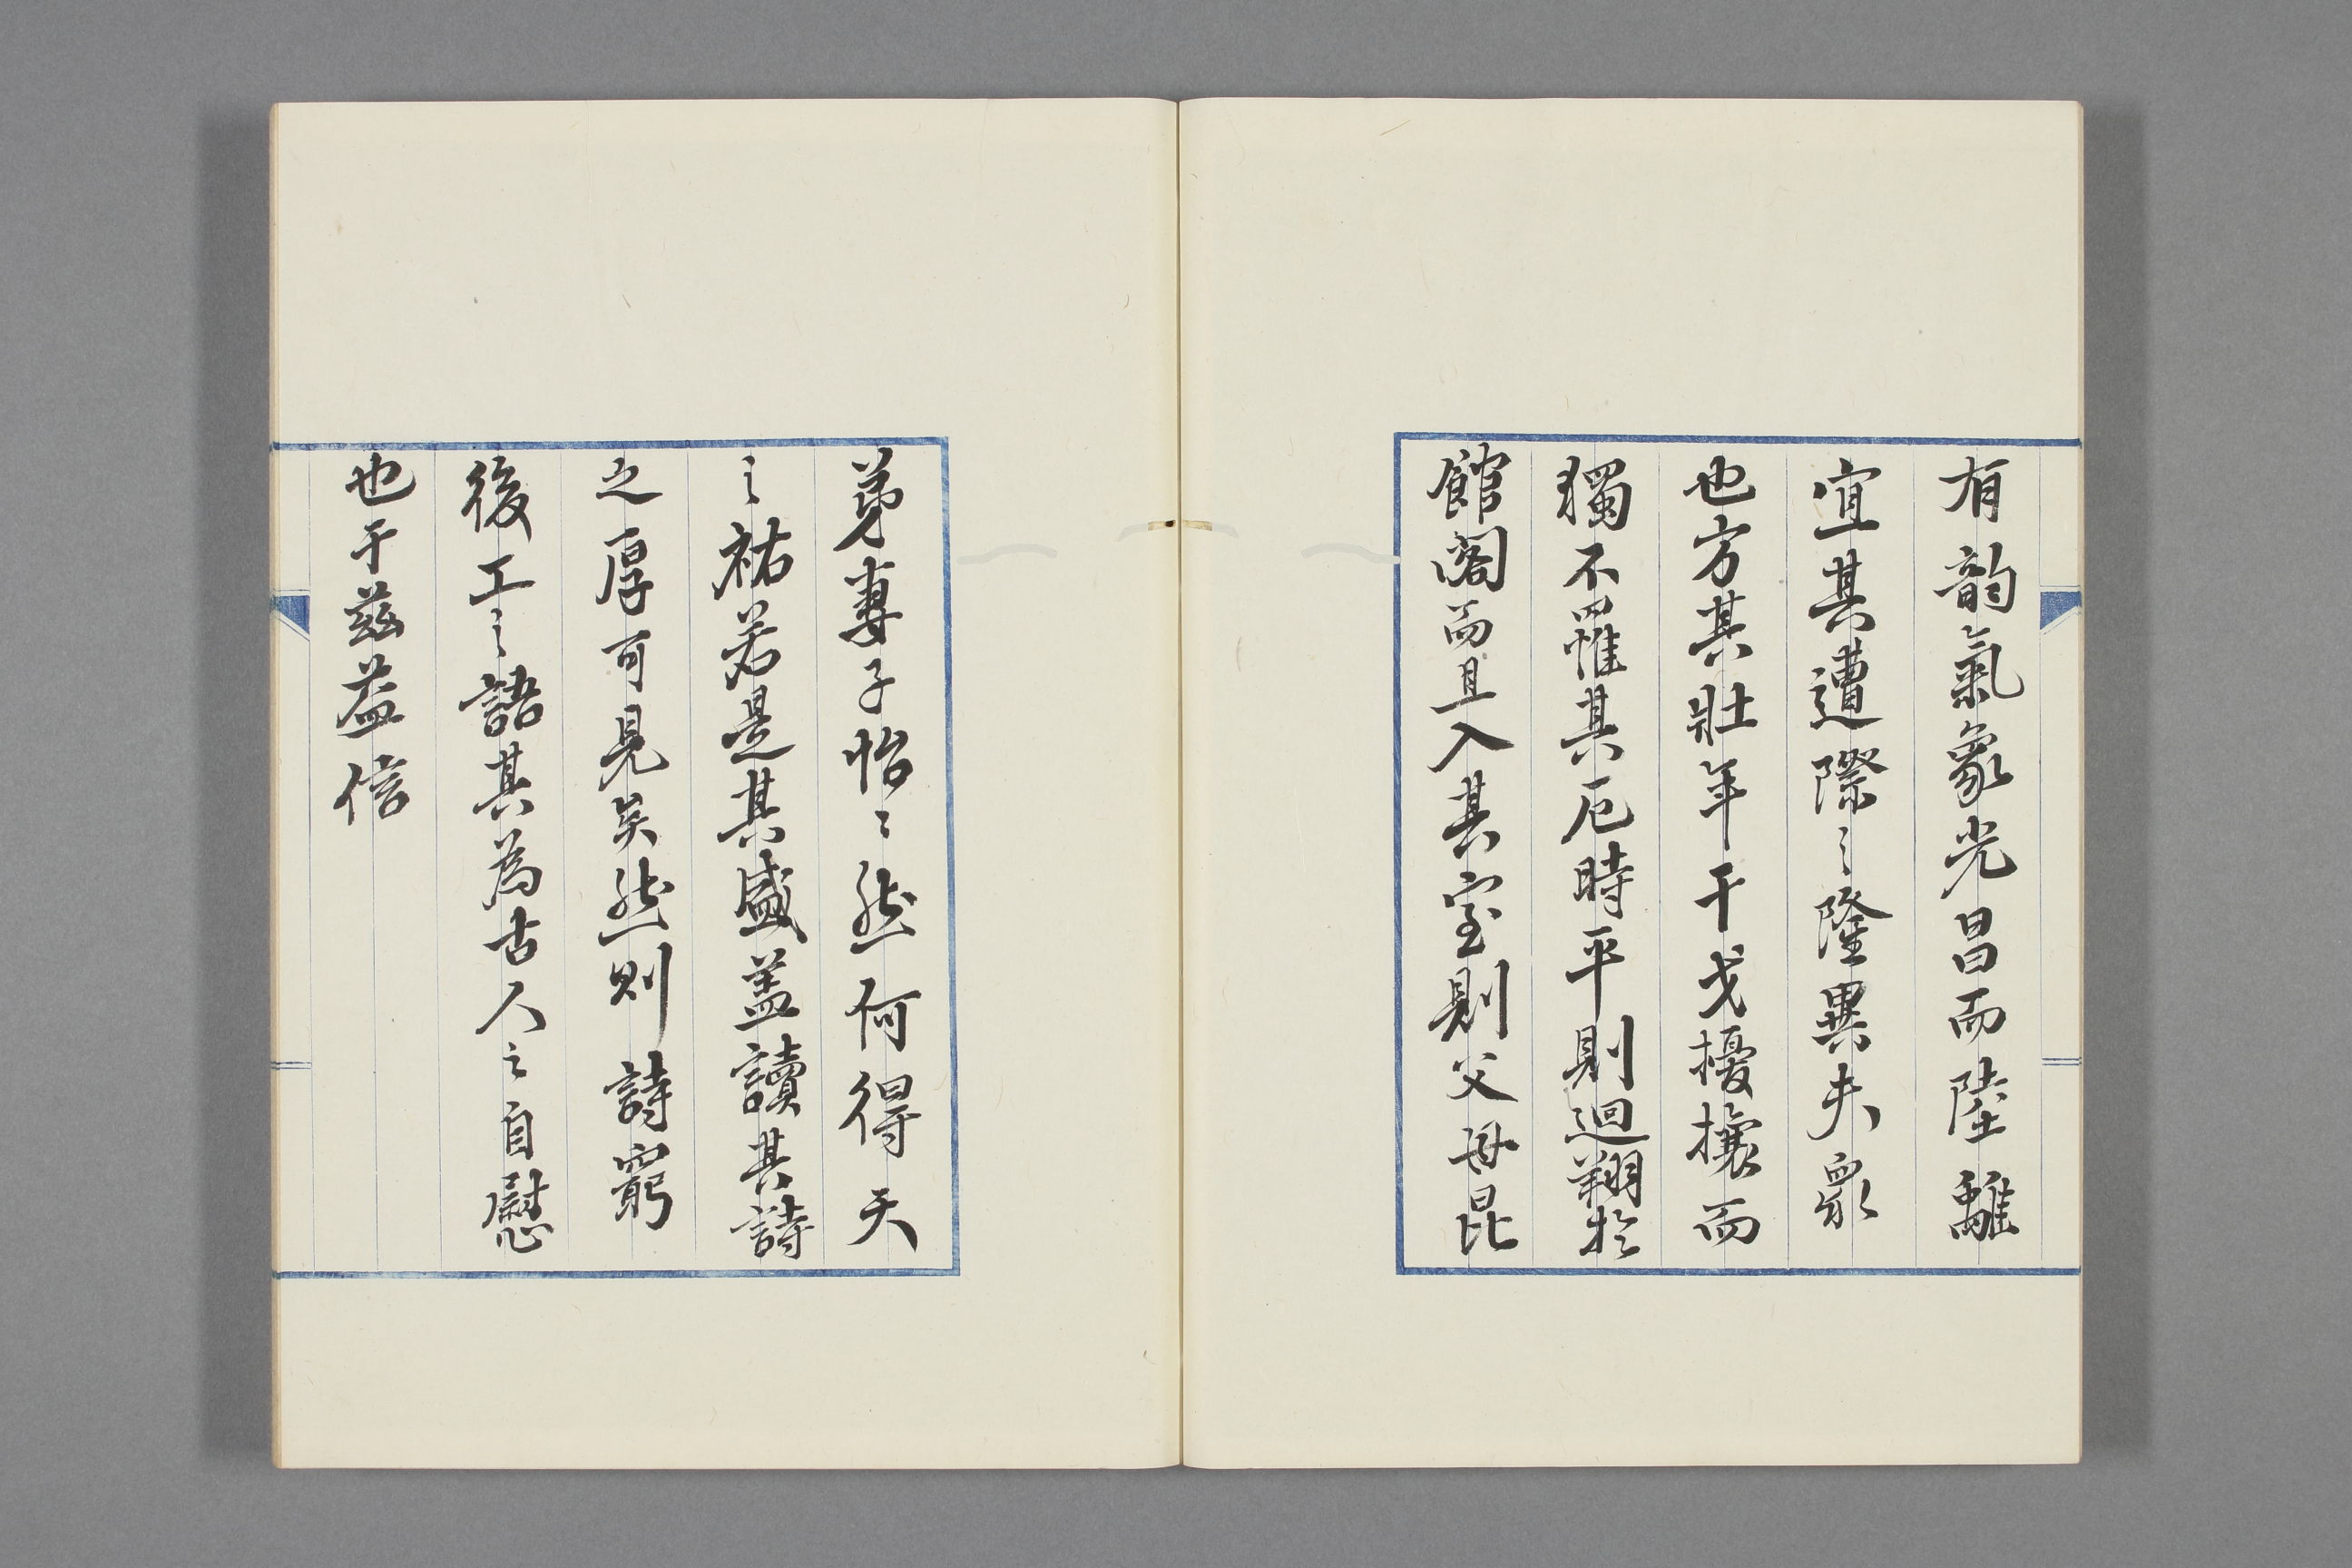 有韵氣象光昌而陸離
宜其遭際之隆異夫衆
也方其壯年干戈擾攘而
獨不罹其厄時平則迴翔於
館閣而且入其室則父母昆
弟妻子怡〻然何得天
之祐若是其盛盖讀其詩
之厚可見矣然則詩窮
後工之語其為古人之自慰
也于兹益信